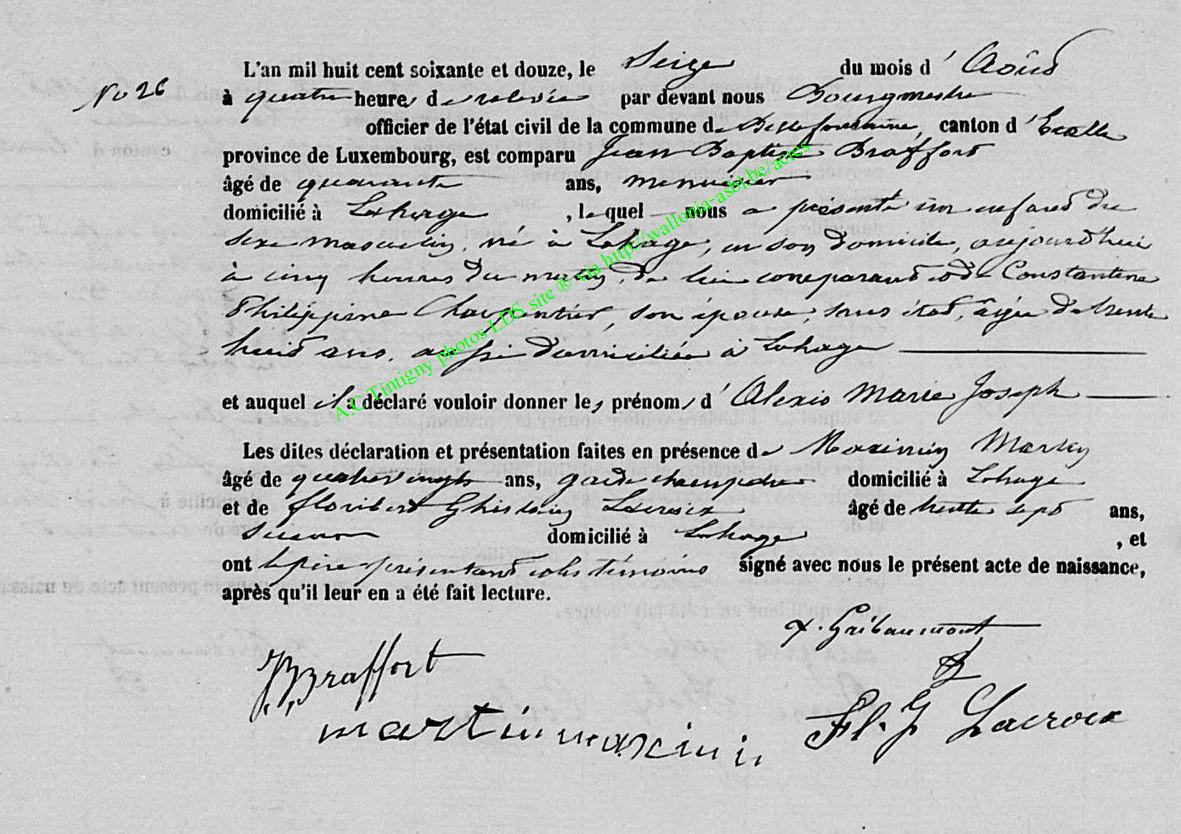 No 26
L'an mil huit cent soixante et douze, le Seize du mois d'Août
à quatre heures de relevée par devant nous Bourgmestre
officier de l'état civil de la commune de Bellefontaine, canton d'Etalle
province de Luxembourg, est comparu Jean Baptiste Braffort
âgé de quarante ans, menuisier
domicilié à Lahage, lequel nous a présenté un enfant du
sexe masculin, né à Lahage, en son domicile, aujourd'hui
à cinq heures du matin, de lui comparant et de Constantine
Philippine Charpentier, son épouse, sans état, âgée de trente
huit ans, aussi domiciliée à Lahage
et auquel il a déclaré vouloir donner les prénoms d'Alexis Marie Joseph
Les dites déclaration et présentation faites en présence de Maximin Martin
âgé de quatre vingts ans, garde champêtre domicilié à Lahage
et de Floribert Ghislain Lacroix âgé de trente sept ans,
domicilié à Lahage, et
ont le père présentant et les témoins signé avec nous le présent acte de naissance,
après qu'il leur en a été fait lecture.
Gribaumont
JBBraffort
martin maximin
Fl. G Lacroix
A.C Tintigny photos LDS site ® via http://wallonia-asbl.be/actes